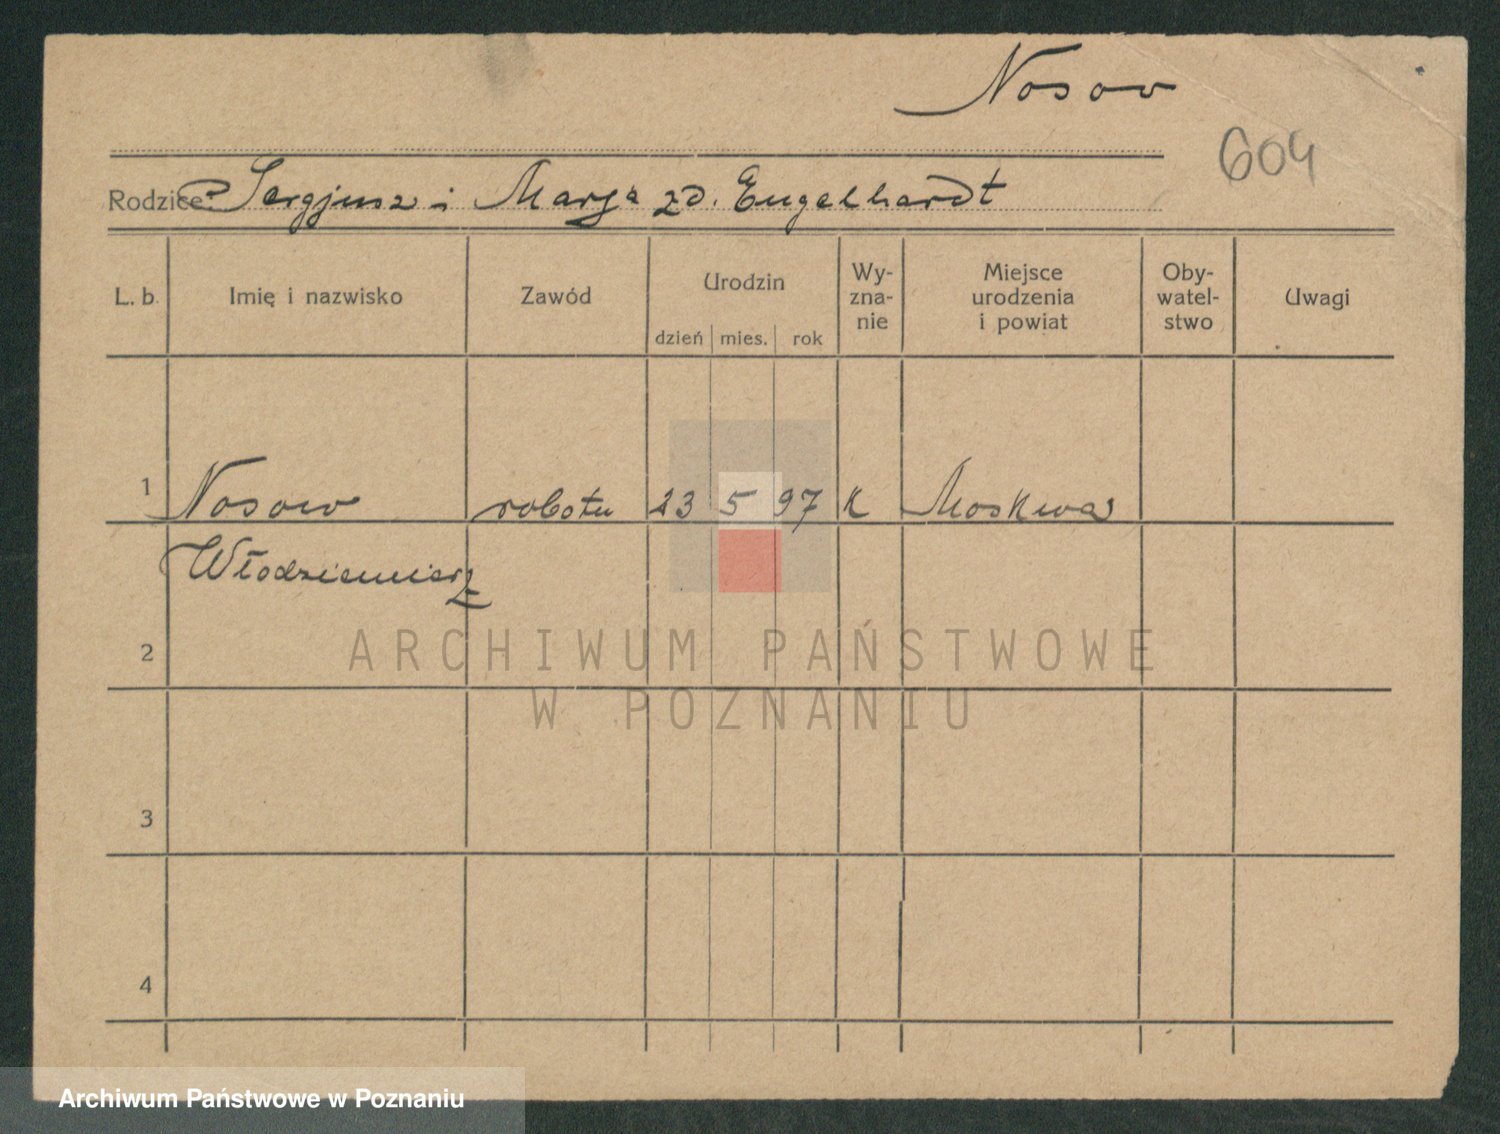 Nosow
604
Rodzice: Sergjusz i Marja zd. Engelhardt
L. b. Imię i nazwisko Zawód Urodzin Wy-zna-nie Miejsce urodzenia i powiat Oby-watel-stwo Uwagi
dzień mies. rok
1 Nosow robotn 23 5 97 K Moskwa
Włodziemierz
2
ARCHIWUM PAŃSTWOWE
W POZNANIU
3
4
Archiwum Państwowe w Poznaniu